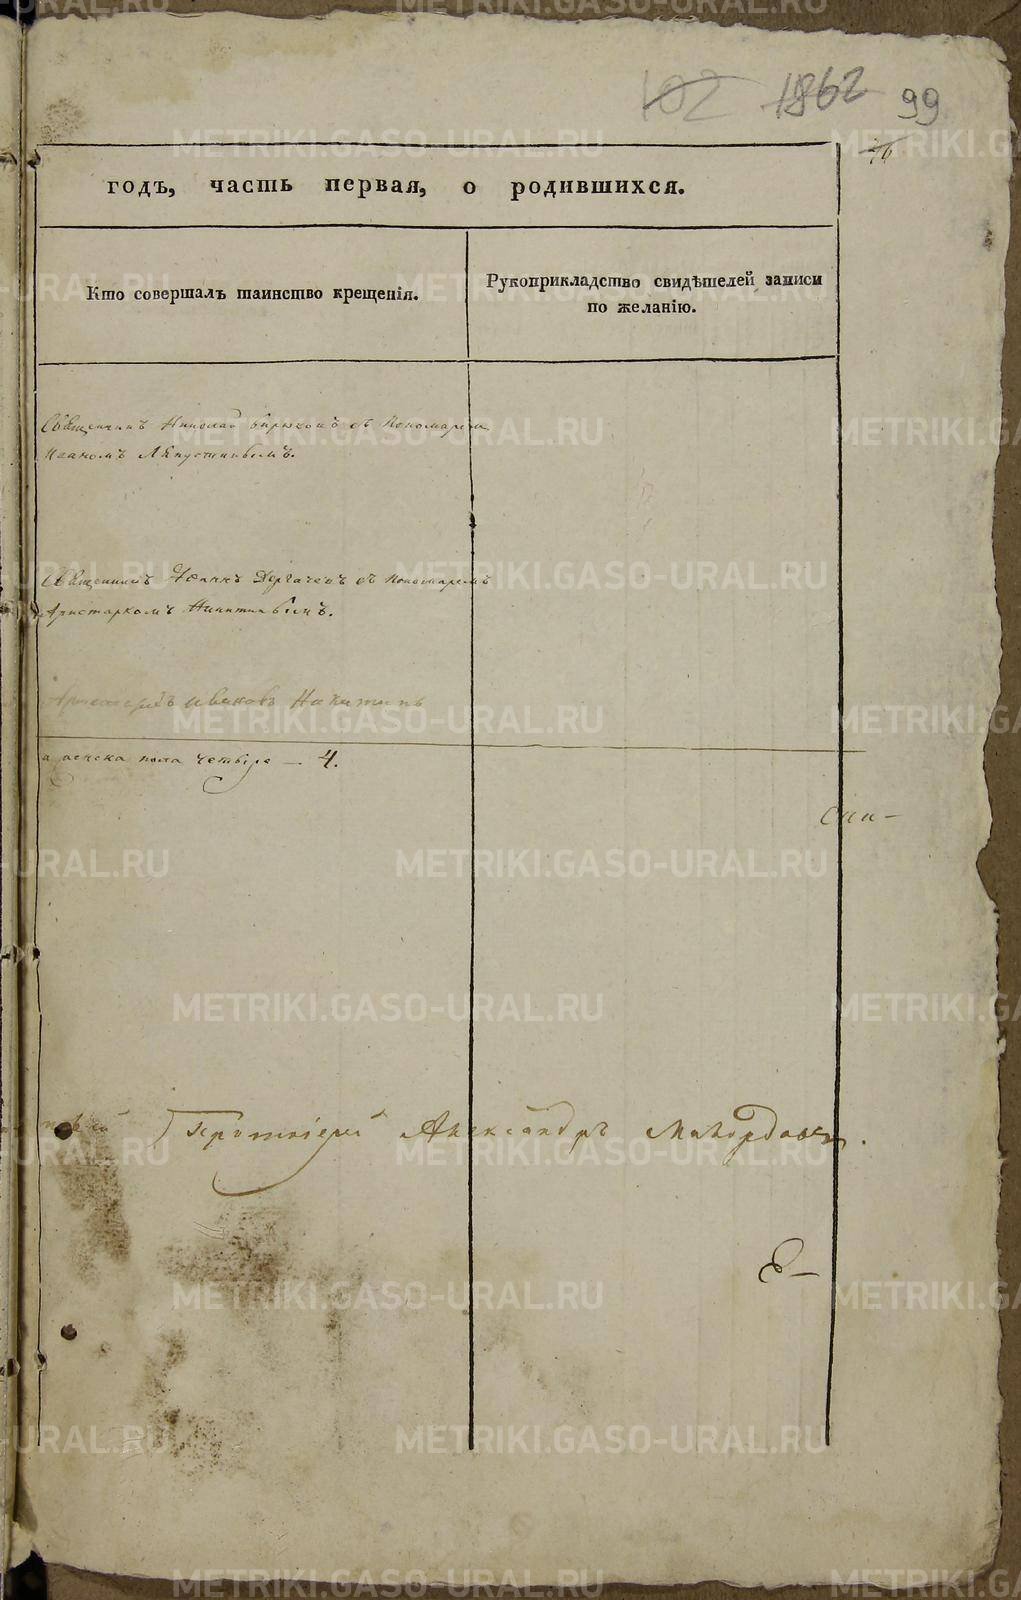 102 1862 99
годъ, часть первая, о родившихся.
Кто совершалъ таинство крещенія.
Рукоприкладство свидѣтелей записи
по желанію.
Священникъ Николай Бирюковъ съ Пономаремъ
Иваномъ Ляпустинымъ.
Священникъ Іоаннъ Дергачевъ съ пономаремъ
Аристархомъ Никитинымъ.
Аристархъ Ивановъ Никитинъ
а женска пола четыре — 4.
Спи-
Протоіерей Александръ
Е—
METRIKI.GASO-URAL.RU